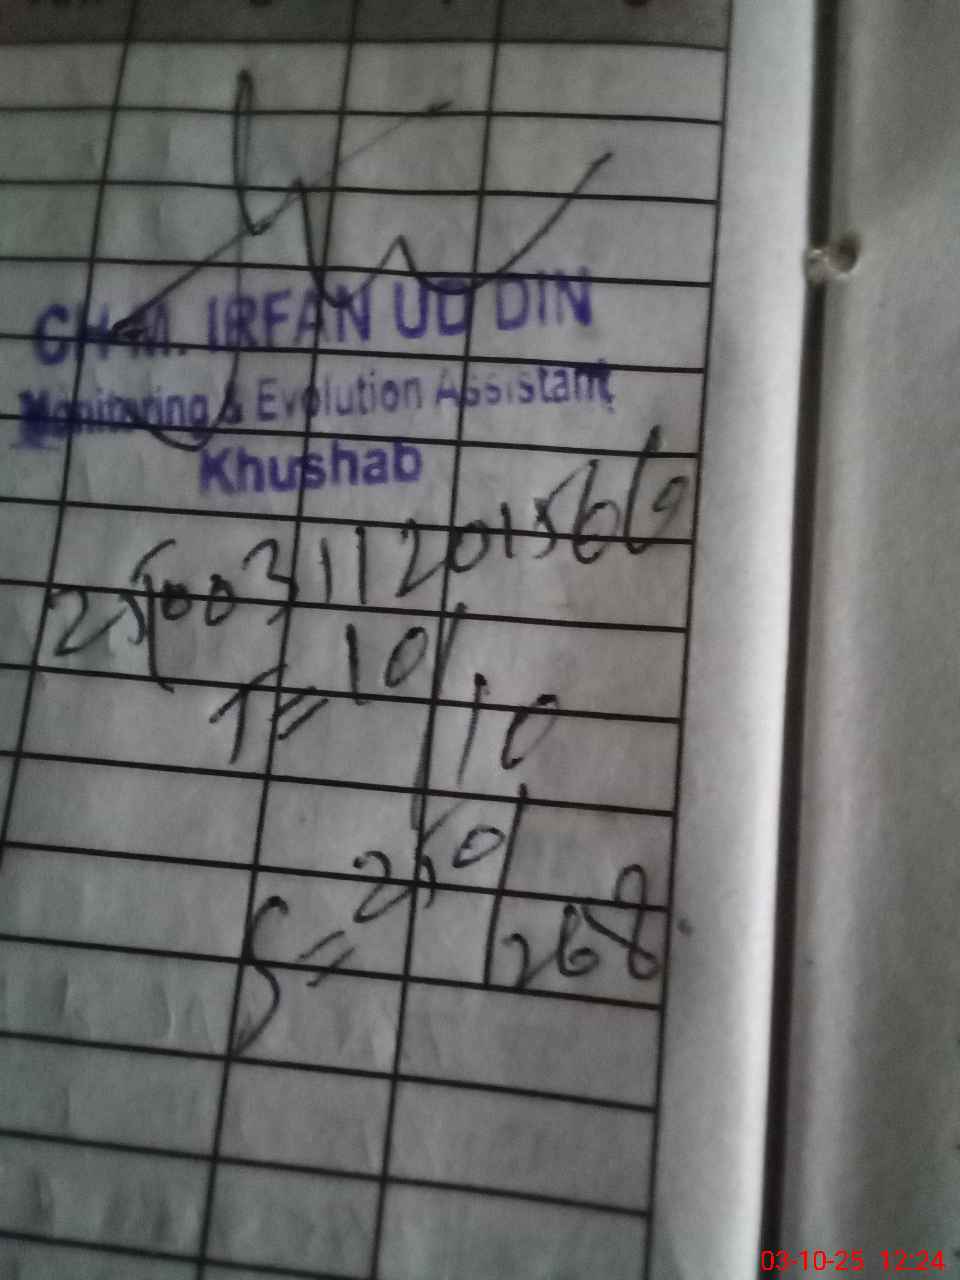 CH M. IRFAN UD DIN
Monitoring & Evolution Assistant
Khushab
T = 10/10
S = 250/268
03-10-25 12:24